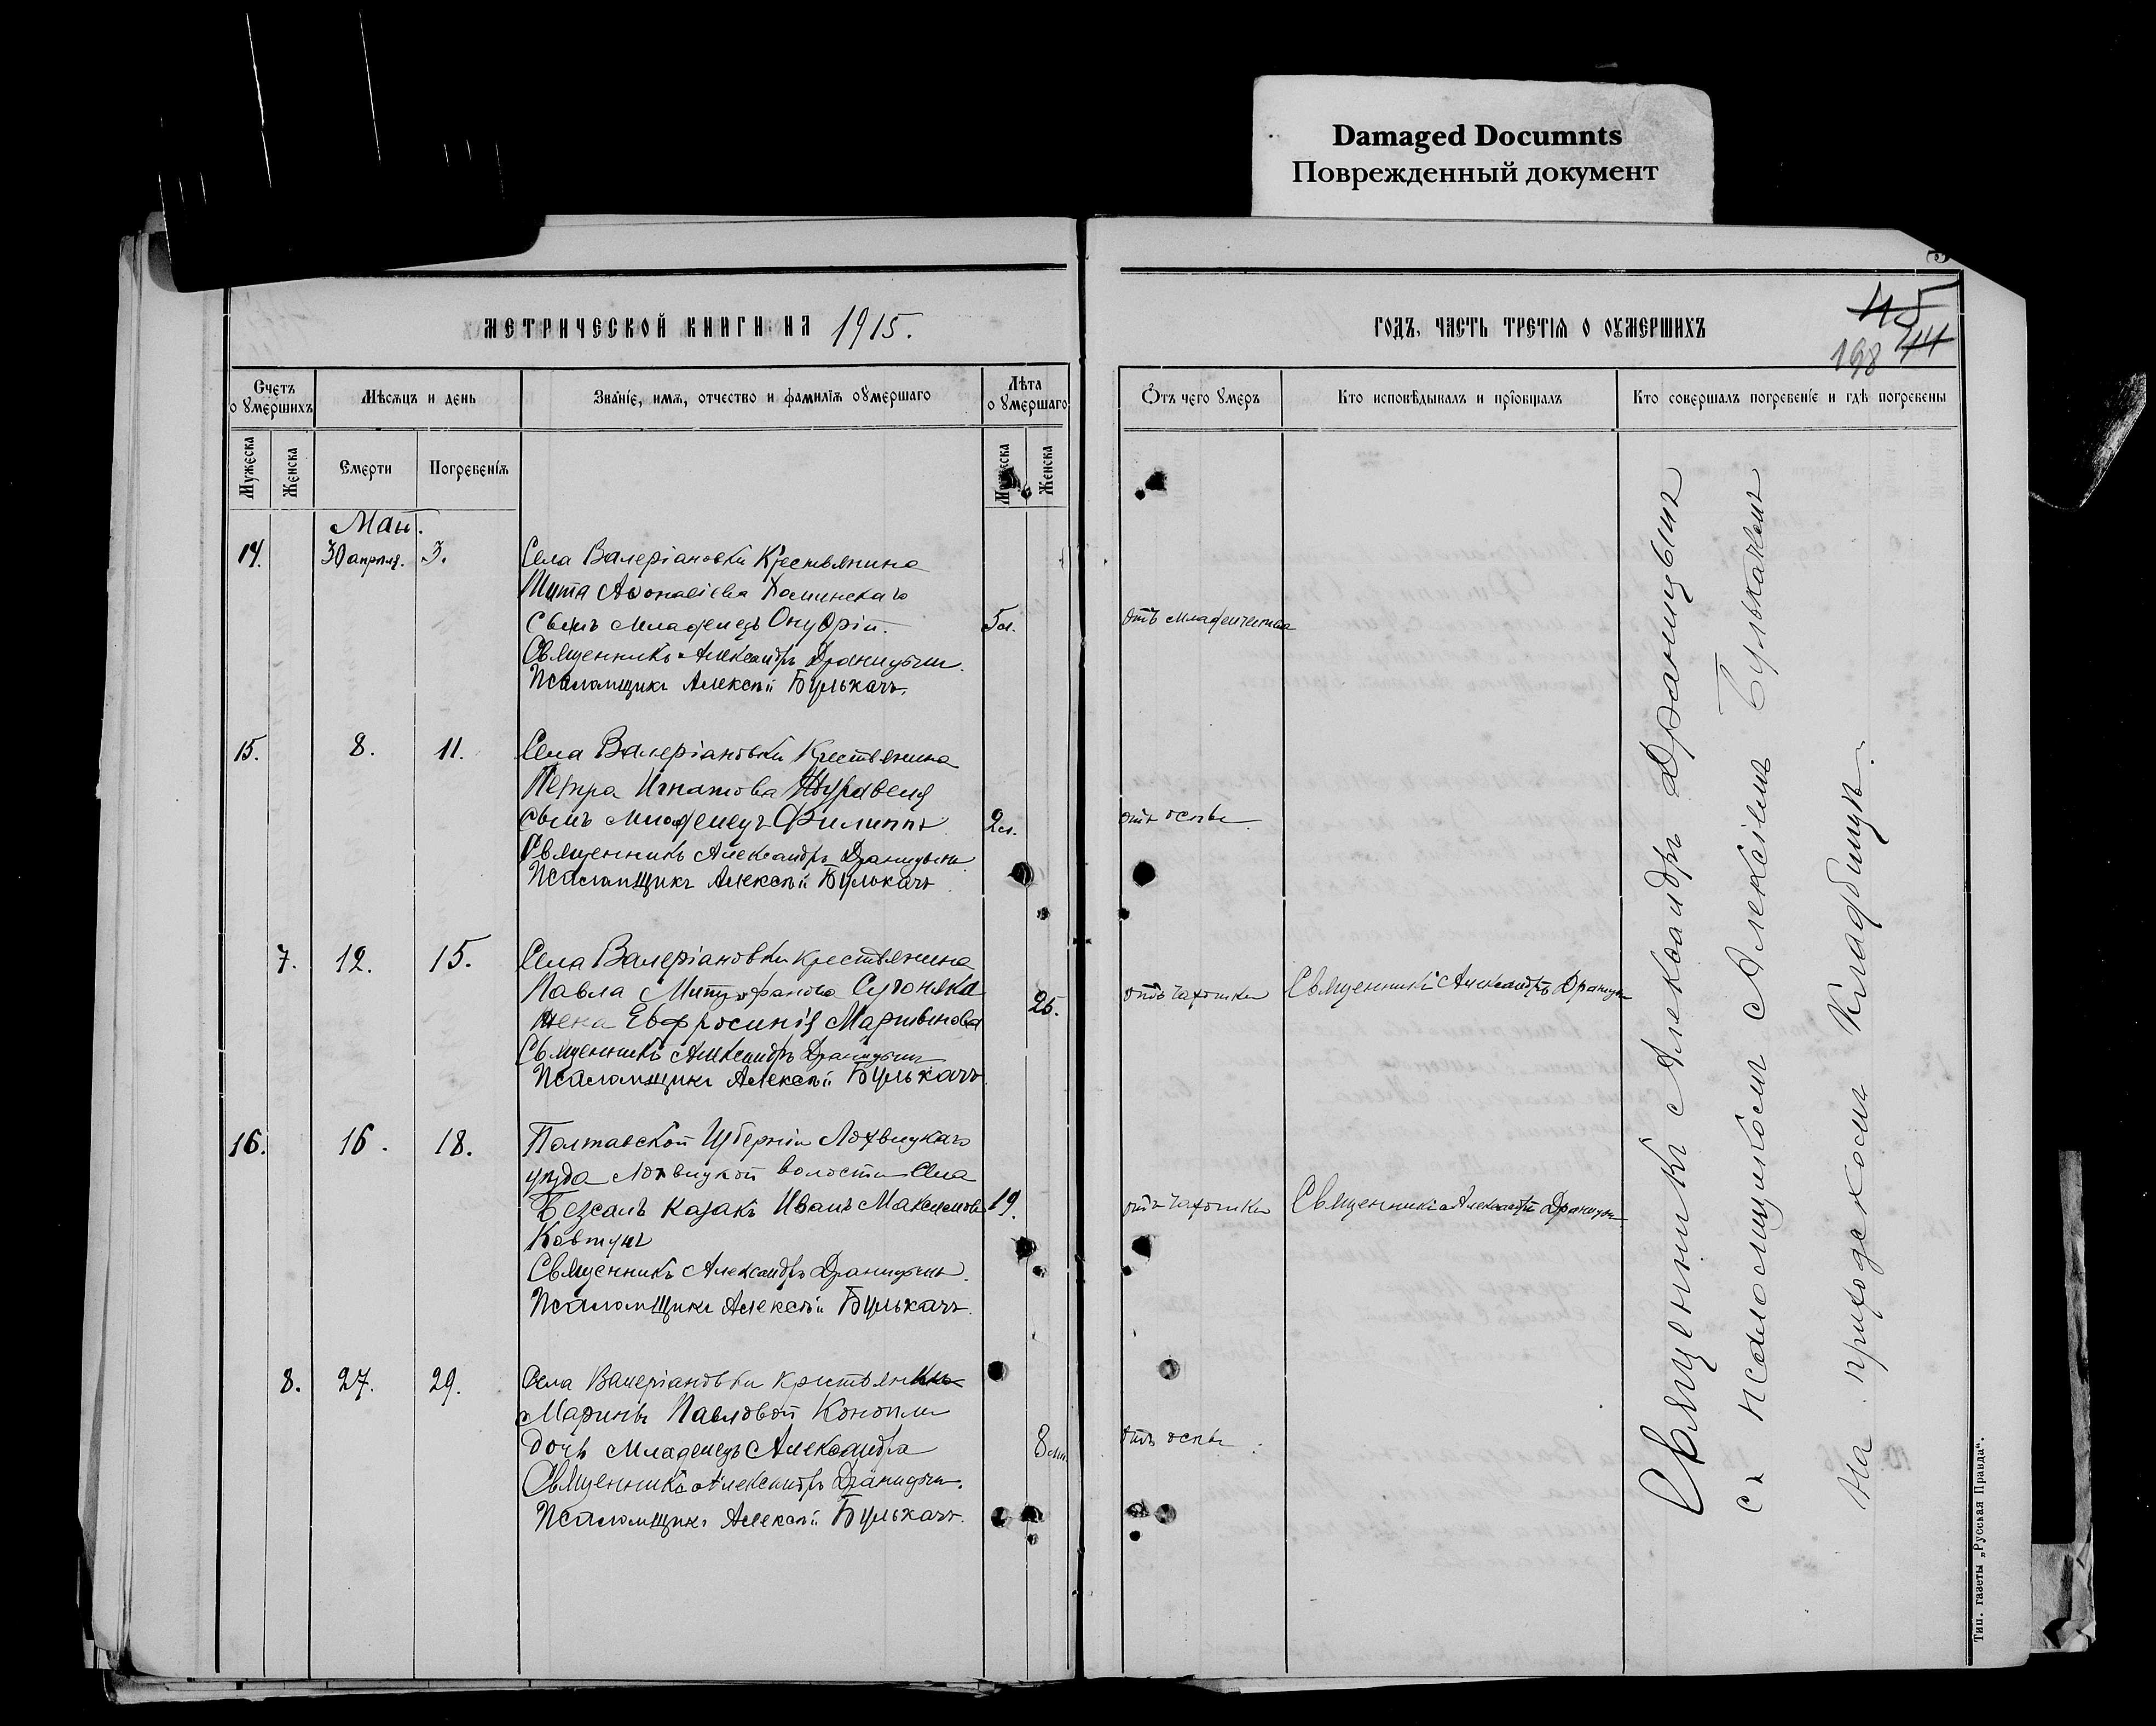 Damaged Documnts
Поврежденный документ
МЕТРИЧЕСКОЙ КНИГИ НА 1915.
ГОДЪ, ЧАСТЬ ТРЕТІЯ О ОУМЕРШИХЪ
45
44
198
Счетъ о умершихъ
Мѣсяцъ и день
Званіе, имя, отчество и фамилія оумершаго
Лѣта оумершаго
Ѿтъ чего умеръ
Кто исповѣдывалъ и пріобщалъ
Кто совершалъ погребеніе и гдѣ погребены
Мужеска
Женска
Смерти
Погребенія
Мужеска
Женска
Май.
14. 30 апрѣля. 3. Села Валеріановки Крестьянина
Тита Аѳонасіева
Сынъ младенецъ Онуфрій. 5 м. отъ младенческой
Священникъ Александръ Драницынъ.
Псаломщикъ Алексѣй Булькачъ.
15. 8. 11. Села Валеріановки Крестьянина
Петра Игнатова Журавеля
сынъ младенецъ Филиппъ 2 м. отъ оспы.
Священникъ Александръ Драницынъ
Псаломщикъ Алексѣй Булькачъ
7. 12. 15. Села Валеріановки крестьянина
Павла Митрофанова Сугоняка
жена Евфросинія Мартынова 25. отъ чахотки Священникъ Александръ Драницын
Священникъ Александръ Драницынъ
Псаломщикъ Алексѣй Булькачъ
16. 16. 18. Полтавской Губерніи Лохвицкаго
уѣзда Лохвицкой волости Села
Безсалъ казакъ Иванъ Максимовъ 19. отъ чахотки Священникъ Александръ Драницын
Ковтунъ
Священникъ Александръ Драницынъ.
Псаломщикъ Алексѣй Булькачъ.
8. 27. 29. Села Валеріановки крестьянки
Марины Павловой Конопли
дочь младенецъ Александра 8 м. отъ оспы.
Священникъ Александръ Драницынъ.
Псаломщикъ Алексѣй Булькачъ.
Священникъ Александръ Драницынъ
съ псаломщикомъ Алексіемъ Булькачемъ
На приходскомъ Кладбищѣ.
Тип. газеты „Русская Правда“.